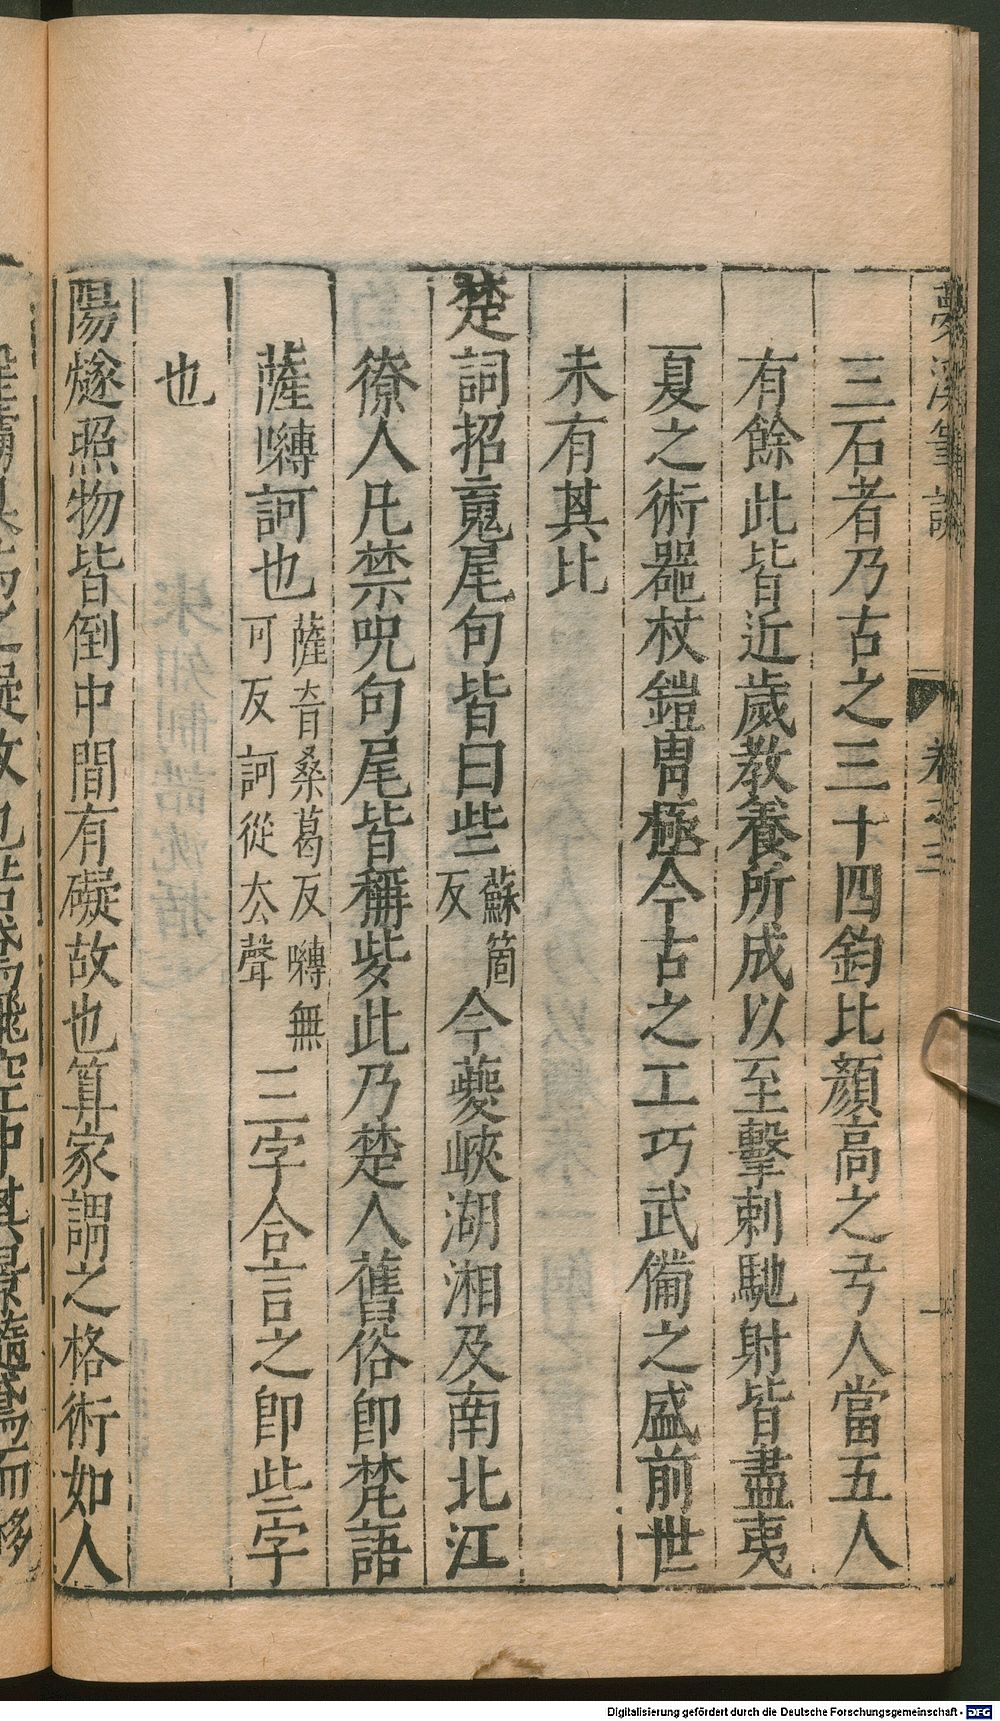 夢溪筆談 卷之三 一
三石者乃古之三十四鈞比顏高之弓人當五人
有餘此皆近歲教養所成以至擊刺馳射皆盡夷
夏之術器杖鎧冑極今古之工巧武備之盛前世
未有其比
楚詞招䰟尾句皆曰些蘇箇反今夔峽湖湘及南北江
獠人凡禁呪句尾皆稱些此乃楚人舊俗即梵語
薩嚩訶也薩音桑葛反嚩無可反訶從去聲三字合言之即些字
也
陽燧照物皆倒中間有礙故也算家謂之格術如人
Digitalisierung gefördert durch die Deutsche Forschungsgemeinschaft - DFG